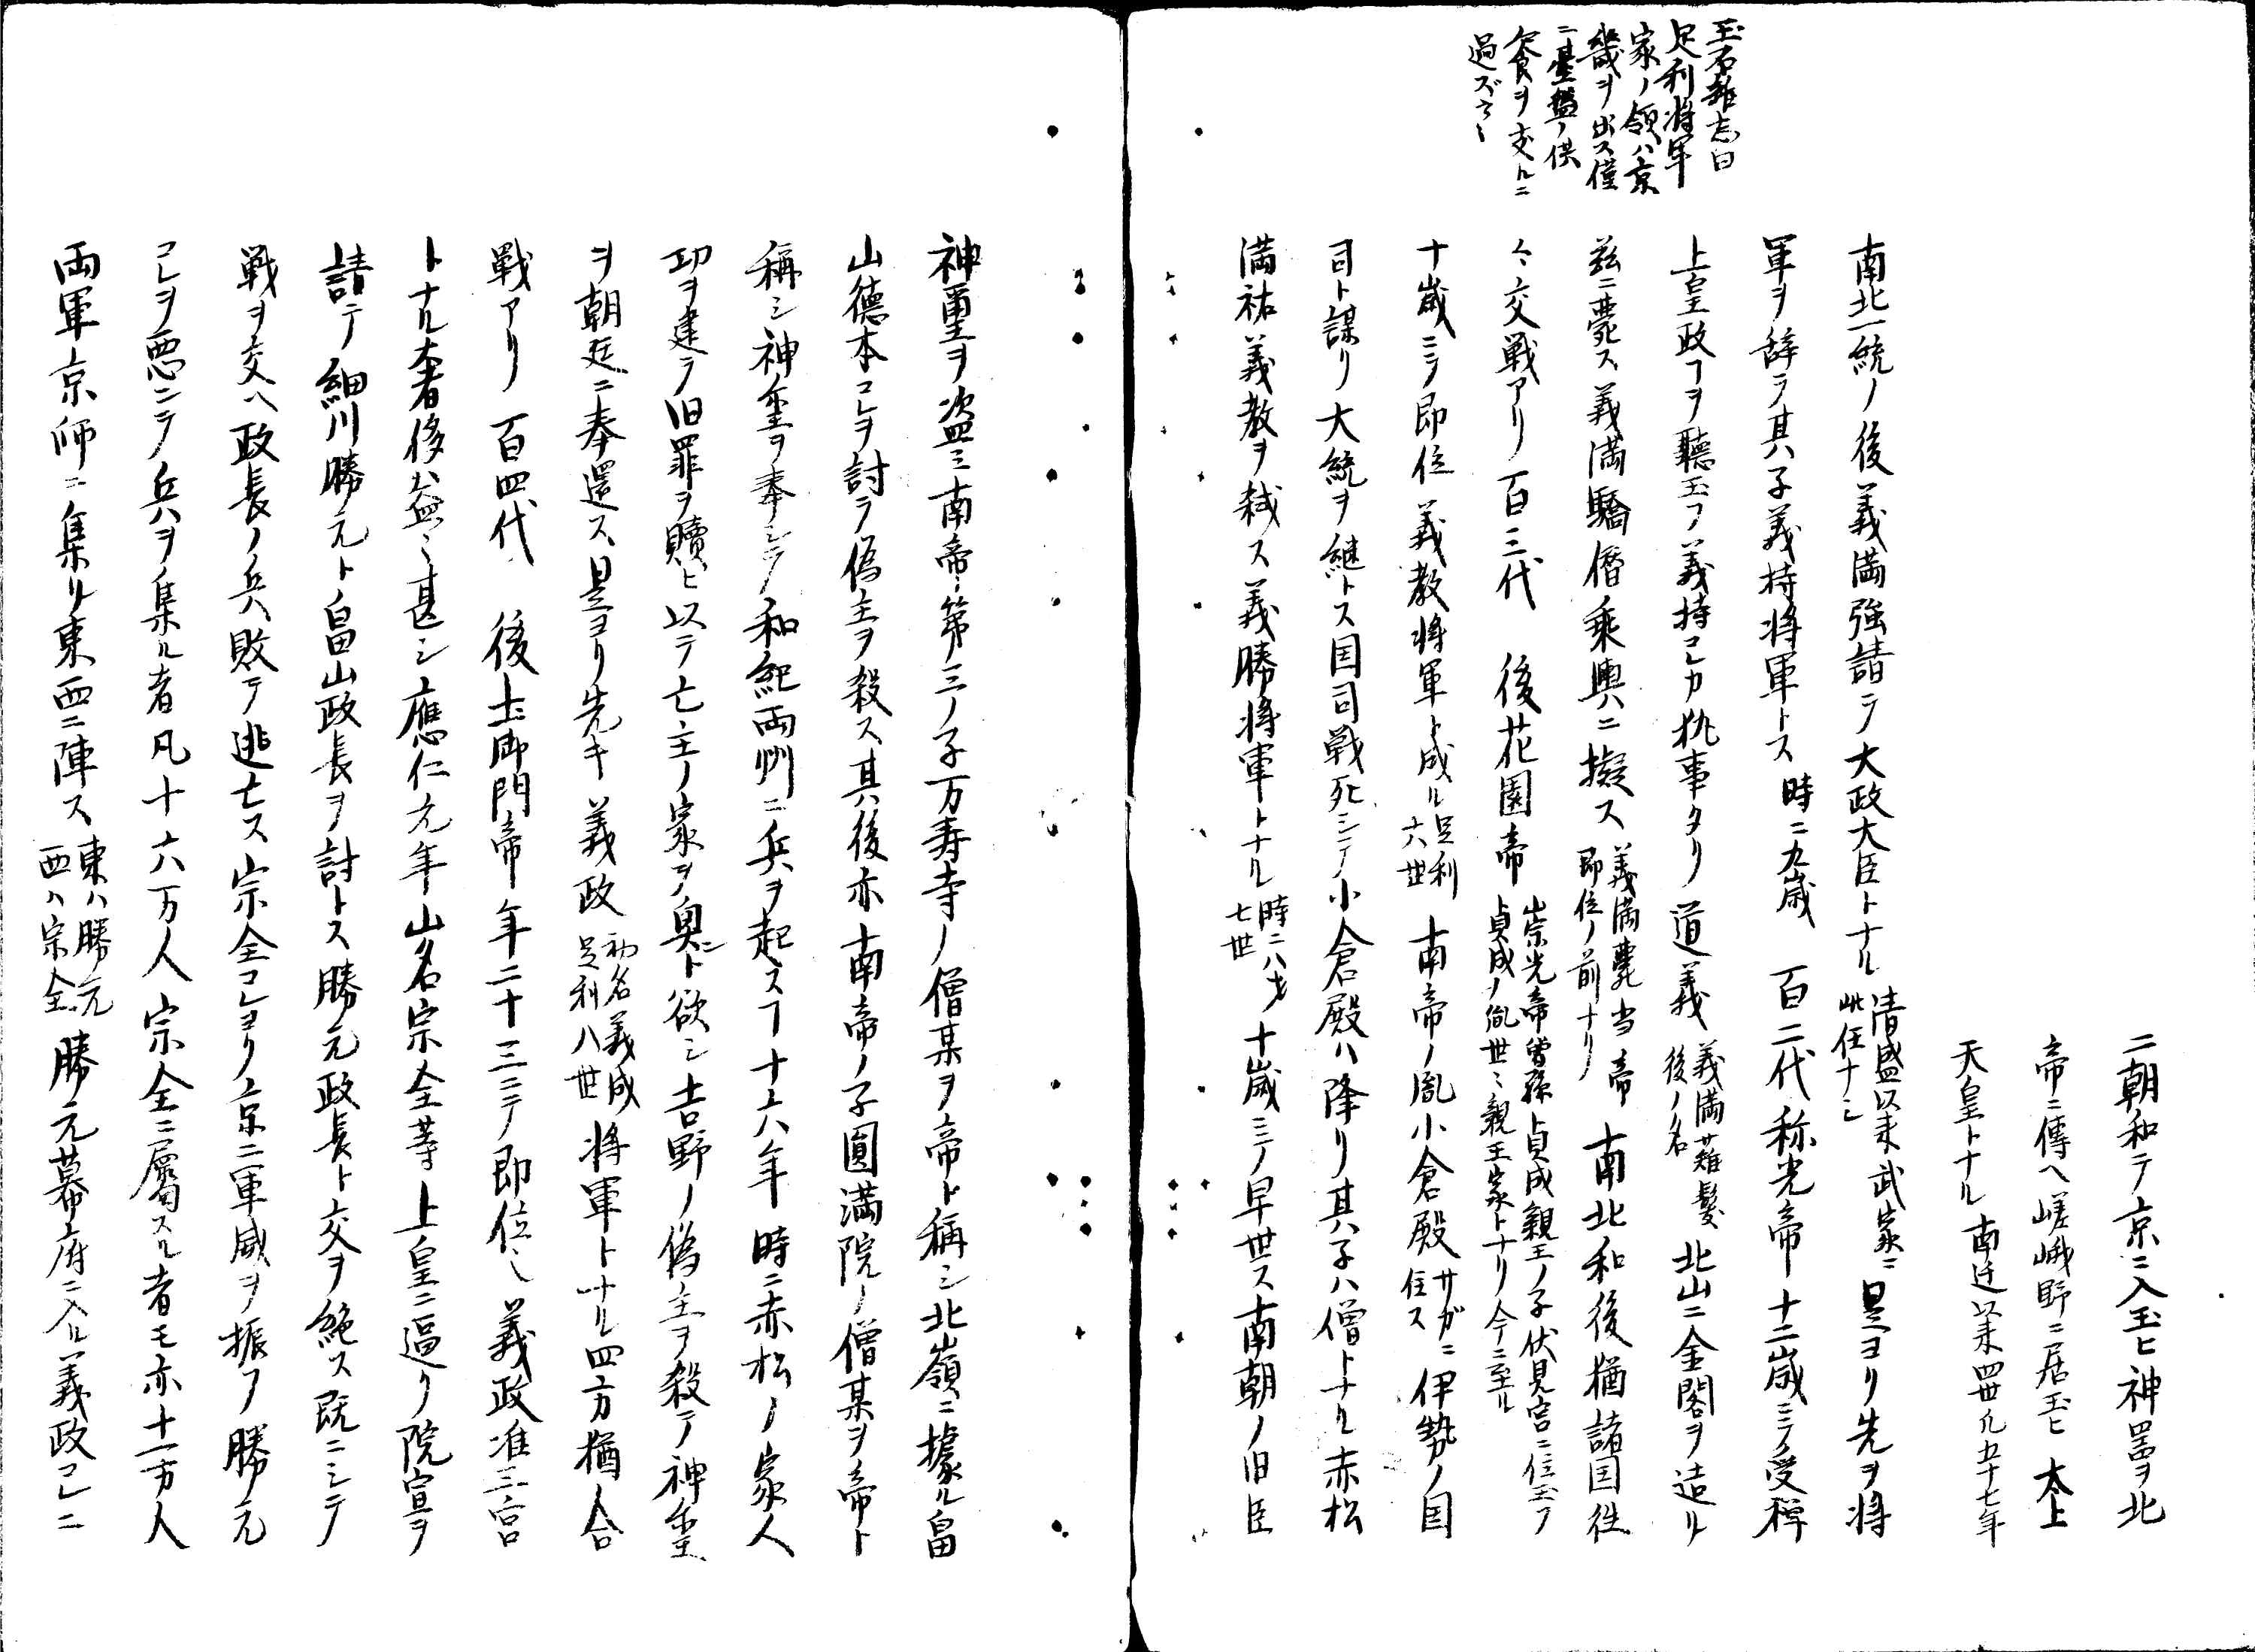 玉石雑志曰
足利将軍
家ノ領ハ京
畿ヲ出ス僅
ニ臺盤ノ供
食ヲ支ルニ
過ズ云々
二朝和テ京ニ入玉ヒ神器ヲ北
帝ニ傳ヘ嵯峨野ニ居玉ヒ 太上
天皇トナル 南迁以来四世凡五十七年
南北一統ノ後義満強請テ大政大臣トナル 清盛以来武家ニ此任ナシ 是ヨリ先ヲ将
軍ヲ辞テ其子義持将軍トス 時ニ九歳 百二代 称光帝 十二歳ニテ受禅
上皇政ヿヲ聽玉フ義持コレカ執事タリ 道義 義満薙髪後ノ名 北山ニ金閣ヲ造リ
茲ニ薨ス義満驕僭乗輿ニ擬ス 義満薨当帝即位ノ前ナリ 南北和後猶諸国徃
々交戦アリ 百三代 後花園帝 崇光帝曽孫貞成親王ノ子伏見宮ニ住玉フ貞成ノ胤世々親王家トナリ今ニ至ル
十歳ニテ即位 義教将軍ト成ル 足利六世 南帝ノ胤小倉殿 サガニ住ス 伊勢ノ国
司ト謀リ大統ヲ継トス国司戦死シテ小倉殿ハ降リ其子ハ僧トナル赤松
満祐義教ヲ弑ス義勝将軍トナル 時ニ八才七世 十歳ニテ早世ス南朝ノ旧臣
神璽ヲ盗ミ南帝第三ノ子万寿寺ノ僧某ヲ帝ト稱シ北嶺ニ據ル畠
山徳本コレヲ討テ偽主ヲ殺ス其後亦南帝ノ子圓満院ノ僧某ヲ帝ト
稱シ神璽ヲ奉シテ和紀両州ニ兵ヲ起スヿ十六年 時ニ赤松ノ家人
功ヲ建テ旧罪ヲ贖ヒ以テ亡主ノ家ヲ興ント欲シ吉野ノ偽主ヲ殺テ神璽
ヲ朝廷ニ奉還ス是ヨリ先キ義政 初名義成足利八世 将軍トナル四方猶合
戦アリ 百四代 後土御門帝 年二十三ニテ即位シ義政准三宮
トナル奢侈益々甚シ應仁元年山名宗全等上皇ニ逼リ院宣ヲ
請テ細川勝元ト畠山政長ヲ討トス勝元政長ト交ヲ絶ス既ニシテ
戦ヲ交ヘ政長ノ兵敗テ逃亡ス宗全コレヨリ京ニ軍威ヲ振フ勝元
コレヲ悪ニテ兵ヲ集ル者凡十六万人宗全ニ屬スル者モ亦十一万人
両軍京師ニ集リ東西ニ陣ス 東ハ勝元西ハ宗全 勝元幕府ニ入ル義政コレニ